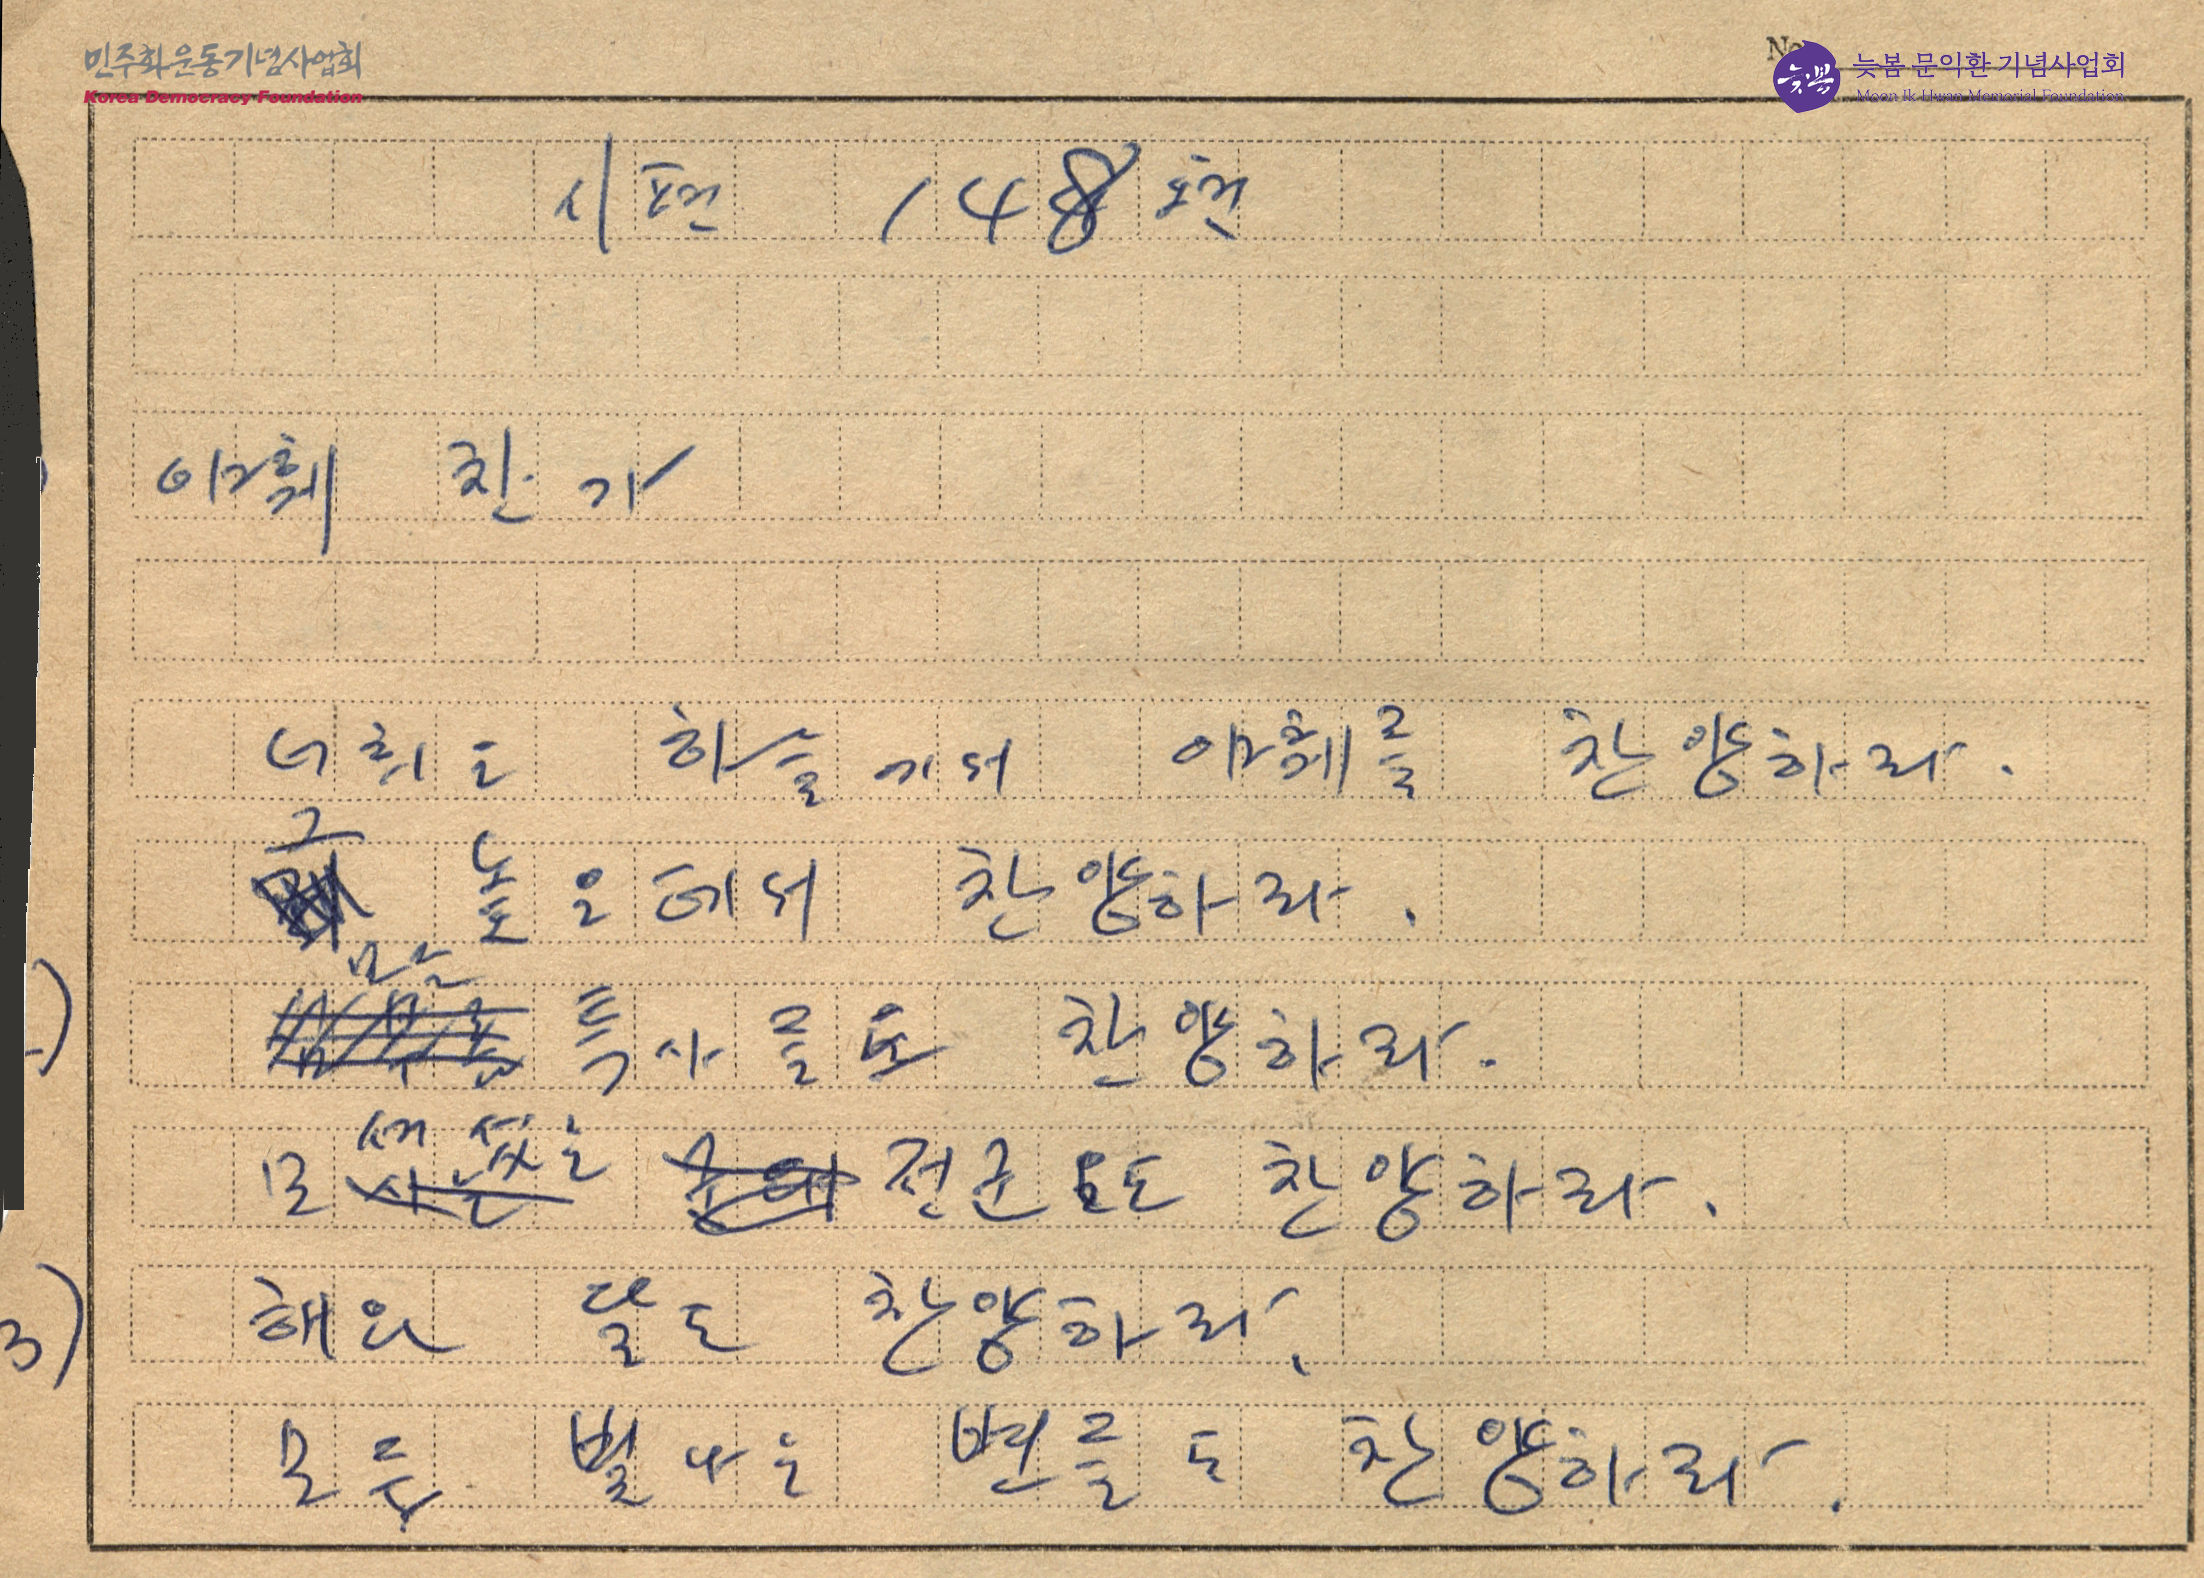 민주화운동기념사업회
Korea Democracy Foundation
No.
늦봄
늦봄 문익환 기념사업회
Moon Ik Hwan Memorial Foundation
시편 148편
야훼 찬가
너희는 하늘에서 야훼를 찬양하라.
그
높은데서 찬양하라.
특사들도 찬양하라.
모
전군도 찬양하라.
3) 해와 달도 찬양하라.
모두 빛나는 별들도 찬양하라.